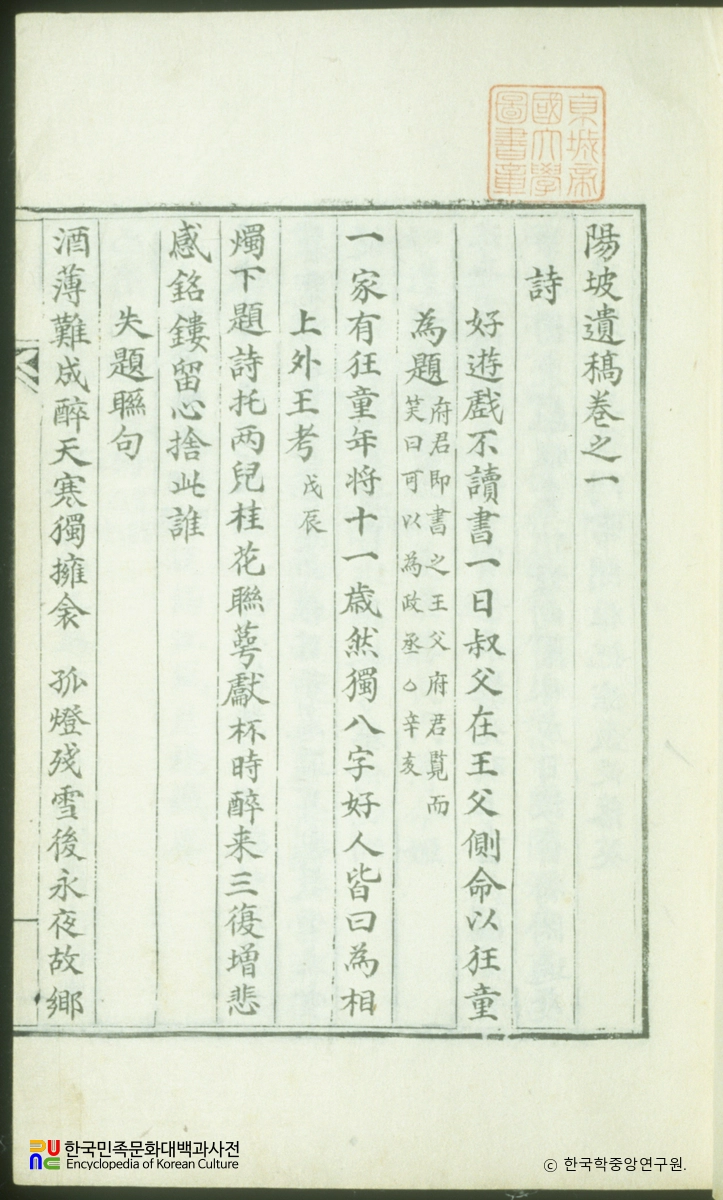 京城帝
國大學
圖書章
陽坡遺稿卷之一
詩
好遊戱不讀書一日叔父在王父側命以狂童
為題
府君即書之王父府君覧而
笑曰可以為政丞 辛亥
一家有狂童年将十一歳然獨八字好人皆曰為相
上外王考 戊辰
燭下題詩托两兒桂花聯萼獻杯時醉来三復增悲
感銘鏤留心捨此誰
失題聮句
酒薄難成醉天寒獨擁衾 孤燈残雪後永夜故鄉
한국민족문화대백과사전
Encyclopedia of Korean Culture
ⓒ 한국학중앙연구원.